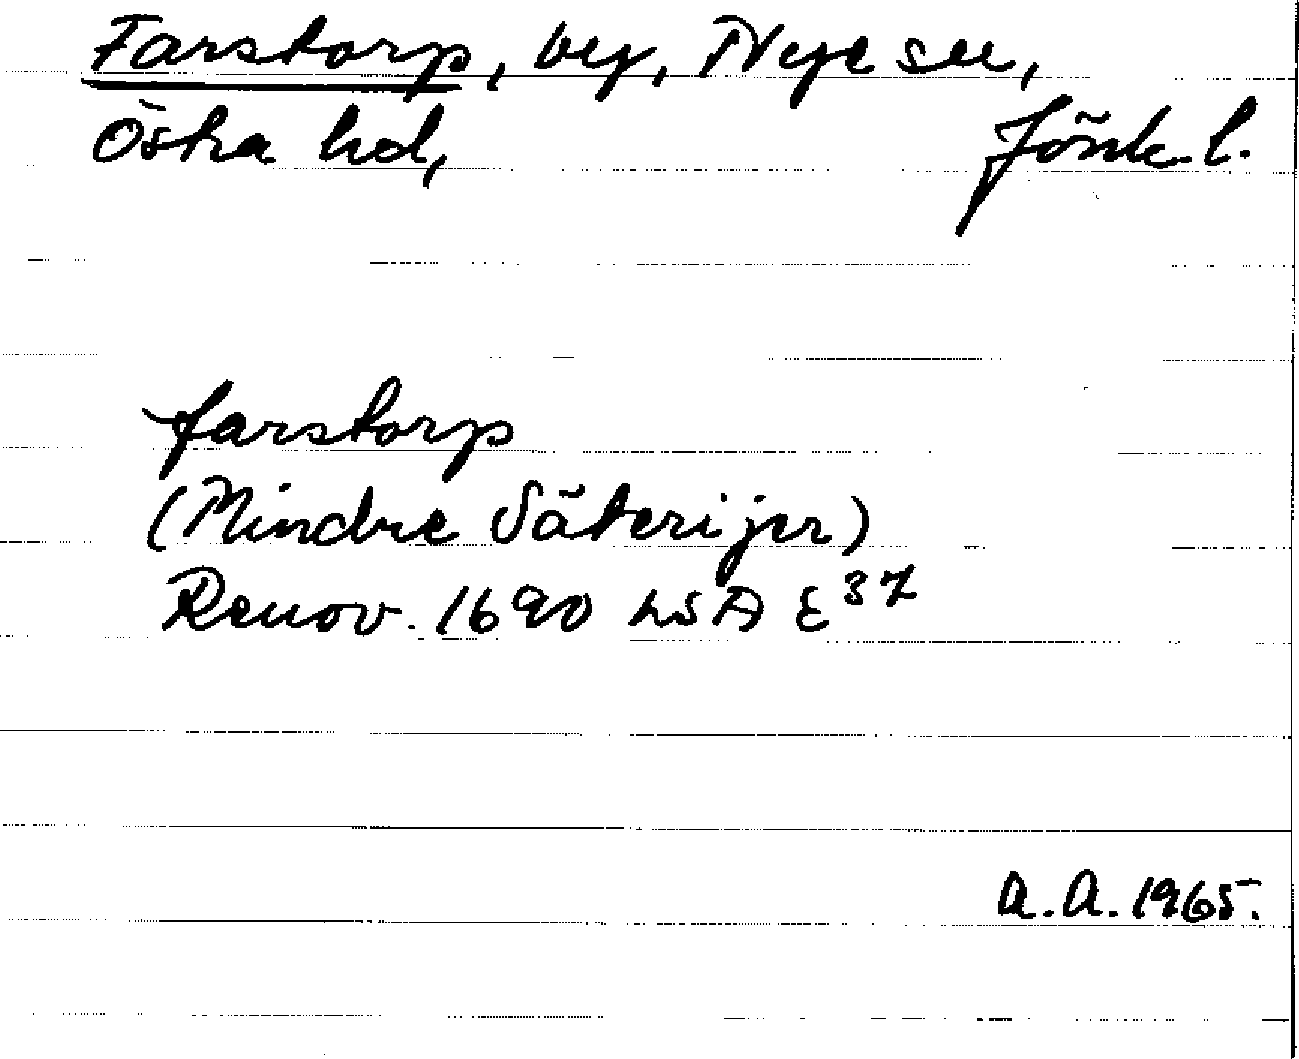 Farstorp, by, Nye sn,
Östra hd, Jönk. l.
farstorp
(Mindre Säterijer)
Renov. 1690 LSA E 37
A.A. 1965.